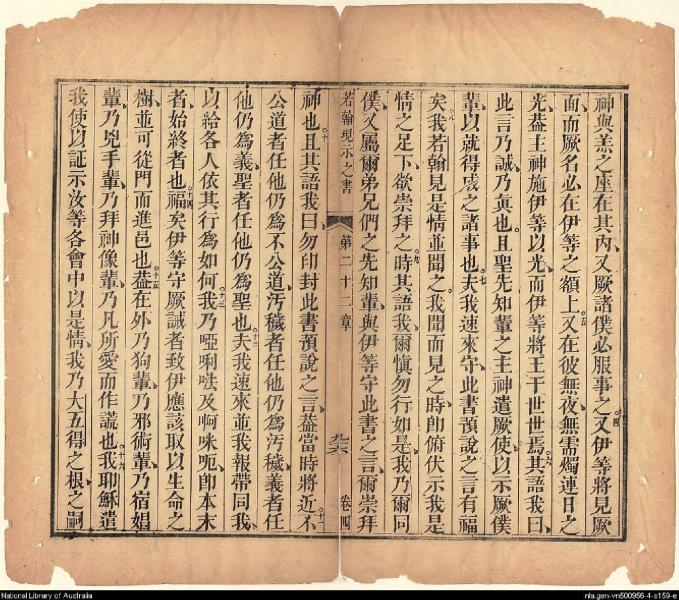 神與羔之座在其內又厥諸僕必服事之又伊等將見厥
四
面而厥名必在伊等之額上又在彼無夜無需燭連日之
五
光葢主神施伊等以光而伊等將王于世世焉其語我曰
六
此言乃誠乃真也且聖先知輩之主神遣厥使以示厥僕
輩以就得成之諸事也夫我速來守此書預說之言有福
七
矣我若翰見是情並聞之我聞而見之時即俯伏示我是
八
情之足下欲崇拜之時其語我爾慎勿行如是我乃爾同
九
僕又屬爾弟兄們之先知輩與伊等守此書之言爾崇拜
若翰現示之書
第二十二章
卷四
神也且其語我曰勿印封此書預說之言葢當時將近不
十
十一
公道者任他仍為不公道汚穢者任他仍為汚穢義者任
他仍為義聖者任他仍為聖也夫我速來並我報帶同我
十二
以給各人依其行為如何我乃啞唎呿及啊咪呃即本末
十三
者始終者也福矣伊等守厥誡者致伊應該取以生命之
十四
樹並可從門而進邑也葢在外乃狗輩乃邪術輩乃宿娼
十五
輩乃兇手輩乃拜神像輩乃凡所愛而作謊也我耶穌遣
十六
我使以証示汝等各會中以是情我乃大五得之根之嗣
National Library of Australia
nla.gen-vn500956-4-s159-e